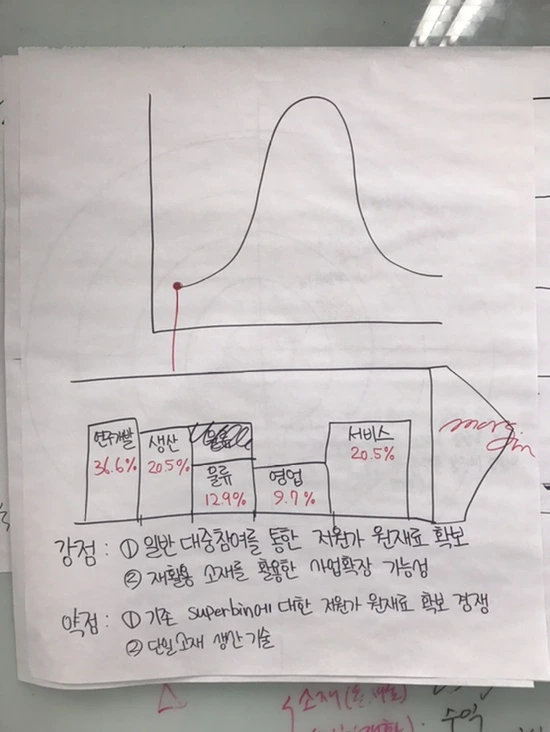 연구개발
36.6%
생산
20.5%
물류
12.9%
영업
9.7%
서비스
20.5%
margin
강점 : ① 일반 대중참여를 통한 저원가 원재료 확보
② 재활용 소재를 활용한 사업확장 가능성
약점 : ① 기존 superbin에 대한 저원가 원재료 확보 경쟁
② 단일소재 생산기술
소재(
수익